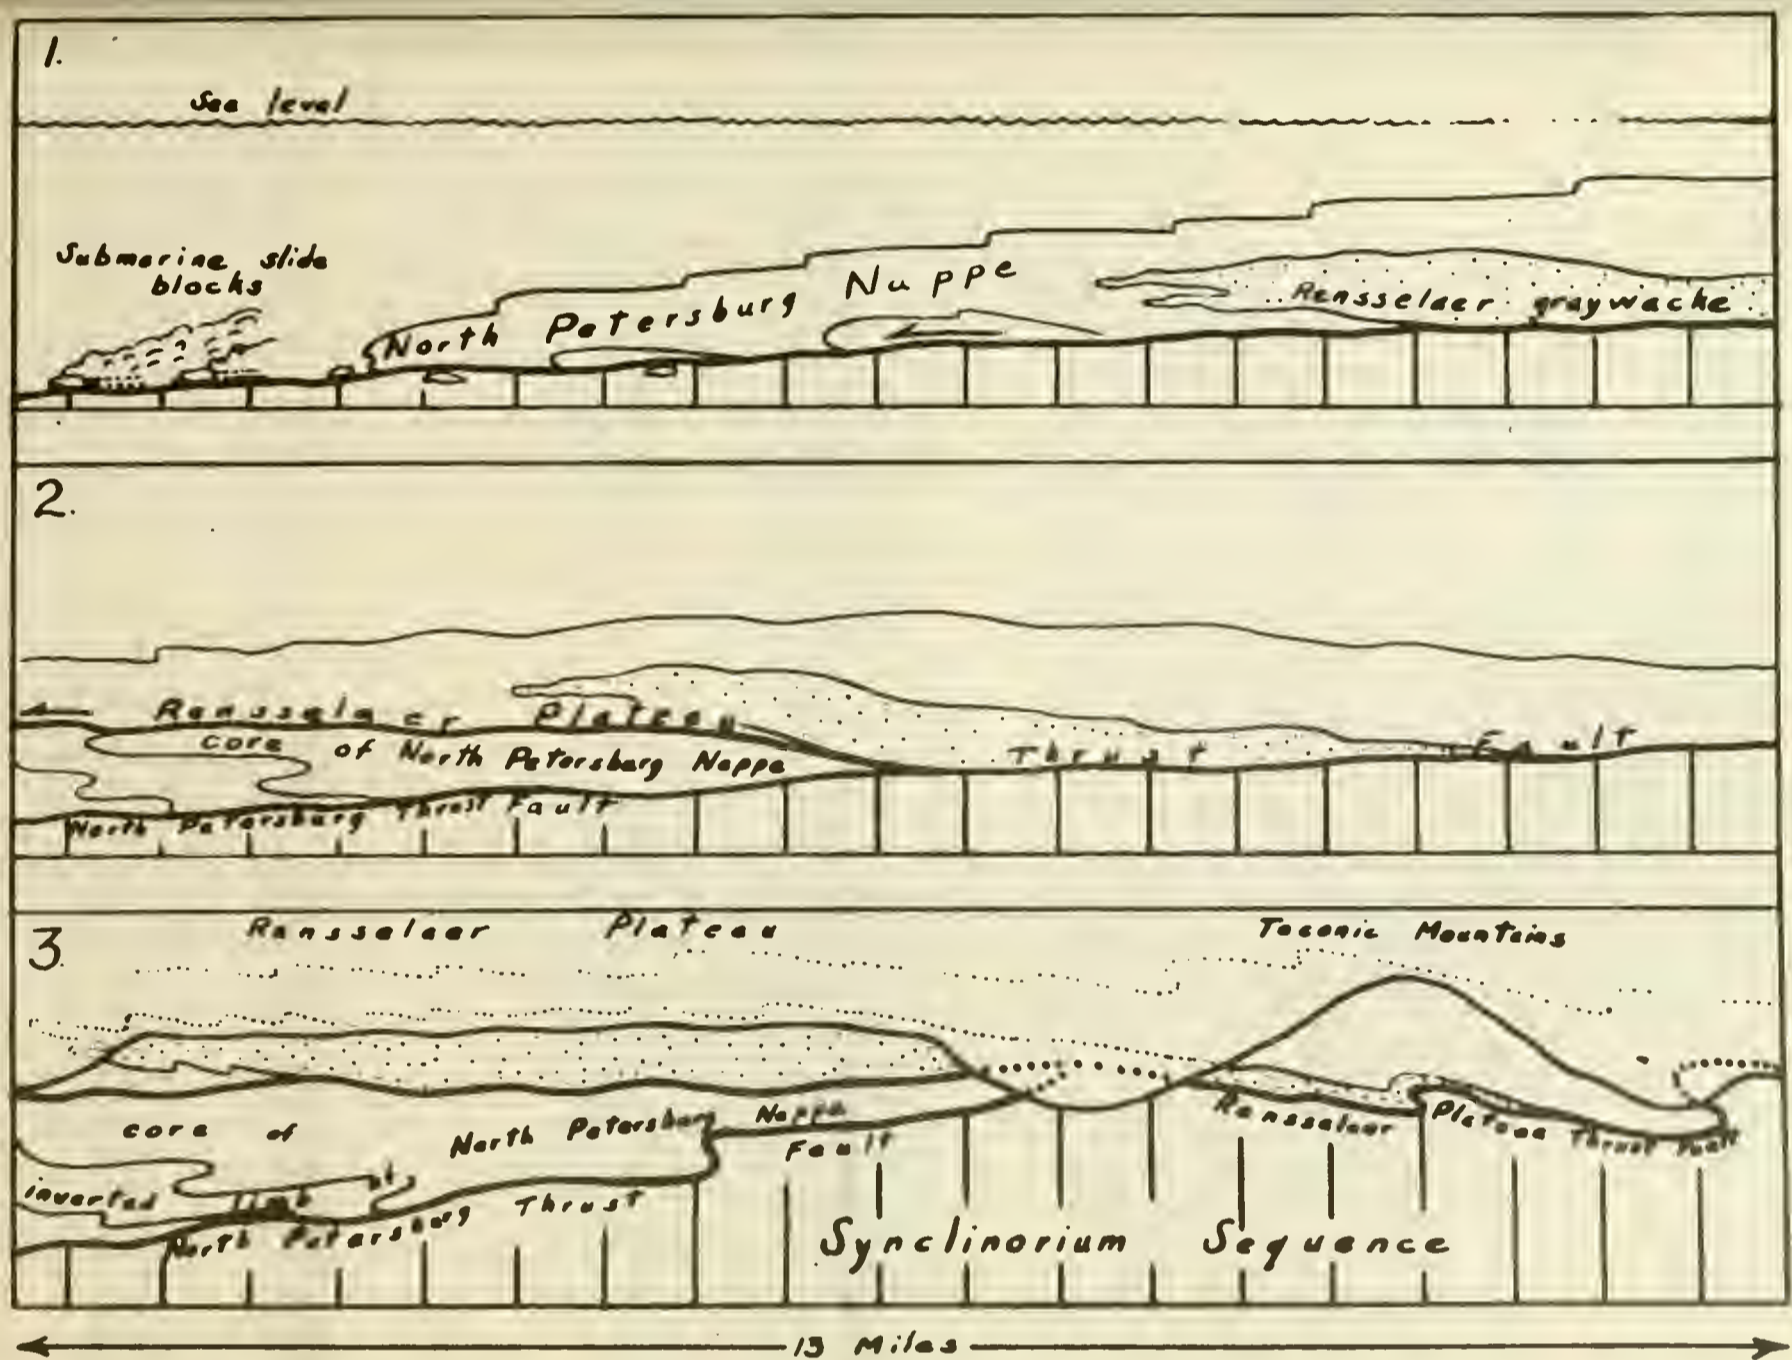 1.
Sea level
Submarine slide
blocks
North Petersburg Nappe
Rensselaer graywacke
2.
Rensselaer Plateau Thrust Fault
core of North Petersburg Nappe
North Petersburg Thrust Fault
3
Rensselaer Plateau
Taconic Mountains
core of North Petersburg Nappe
Rensselaer Plateau Thrust Fault
inverted limb
North Petersburg Thrust Fault
Synclinorium Sequence
13 Miles